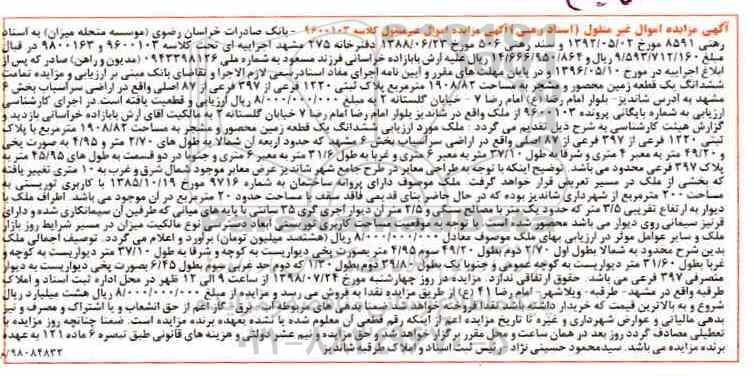 آگهی مزایده اموال غیر منقول (اسناد رهنی) آگهی مزایده اموال غیرمنقول کلاسه ۹۶۰۰۱۰۳ - بانک صادرات خراسان رضوی (موسسه منحله میزان) به استناد
رهنی ۸۵۹۱ مورخ ۱۳۹۲/۰۵/۰۲ و سند رهنی ۵۰۶ مورخ ۱۳۸۸/۰۶/۲۳ دفترخانه ۲۷۵ مشهد اجراییه ای تحت کلاسه ۹۶۰۰۱۰۳ و ۹۸۰۰۱۶۳ در قبال
مبلغ ۹/۵۹۳/۷۱۲/۱۶۰ ریال و ۱۴/۶۶۶/۹۵۰/۸۶۴ ریال علیه آرش بابازاده خراسانی فرزند مسعود به شماره ملی ۰۹۴۳۳۹۸۱۲۶ (مدیون و راهن) صادر که پس از
ابلاغ اجراییه در مورخ ۱۳۹۶/۰۵/۱۰ و در پایان مهلت های مقرر و آیین نامه اجرای مفاد اسنادرسمی لازم الاجرا و تقاضای بانک مبنی بر ارزیابی و مزایده تمامت
ششدانگ یک قطعه زمین محصور و مشجر به مساحت ۱۹۰۸/۸۲ مترمربع پلاک ثبتی ۱۲۲۰ فرعی از ۳۹۷ فرعی از ۸۷ اصلی واقع در اراضی سرآسیاب بخش ۶
مشهد به آدرس شاندیز- بلوار امام رضا (ع) امام رضا ۷ - خیابان گلستانه ۲ به مبلغ ۸/۰۰۰/۰۰۰/۰۰۰ ریال ارزیابی و قطعیت یافته است. در اجرای کارشناسی
ارزیابی به شماره بایگانی پرونده ۹۶۰۰۱۰۳ از ملک واقع در شاندیز بلوار امام رضا امام رضا ۷ خیابان گلستانه ۲ به مالکیت آقای آرش بابازاده خراسانی بازدید و
گزارش هیئت کارشناسی به شرح ذیل تقدیم می گردد : ملک مورد ارزیابی ششدانگ یک قطعه زمین محصور و مشجر به مساحت ۱۹۰۸/۸۲ مترمربع با پلاک
ثبتی ۱۲۲۰ فرعی از ۳۹۷ فرعی از ۸۷ اصلی واقع در اراضی سرآسیاب بخش ۶ مشهد که حدود اربعه آن شمالا به طول های ۲/۷۰ متر و ۴/۹۵ به صورت پخی
و ۴۹/۲۰ متر به معبر ۴ متری و شرقا به طول ۳۷/۱۰ متر به معبر ۶ متری و غربا به طول ۳۱/۶۰ متر به معبر ۶ متری و جنوبا در دو قسمت به طول های ۴۵/۹۵ متر به
پلاک ۳۹۷ فرعی محدود می باشد. توضیح اینکه با توجه به طراحی معابر در طرح جامع شهر شاندیز عرض معابر موجود شمال شرق و غرب به ۱۰ متری تغییر یافته
که بخشی از ملک در مسیر تعریض قرار خواهد گرفت. ملک موصوف دارای پروانه ساختمان به شماره ۹۷۱۶ مورخ ۱۳۸۵/۱۰/۱۹ با کاربری توریستی به
مساحت ۲۰۰ مترمربع از شهرداری شاندیز بوده که در حال حاضر بنای قدیمی فاقد سقف با مساحت حدود ۲۰ مترمربع در آن موجود می باشد. اطراف ملک با
دیوار به ارتفاع تقریبی ۳/۵ متر که حدود یک متر با مصالح سنگی و ۲/۵ متر دیوار آجری گری ۲۵ سانتی با پایه های میانی که طرفین آن سیمانکاری شده و دارای
قرنیز سیمانی روی دیوار می باشد محصور شده است. با توجه به موقعیت مساحت کاربری نوعیت ابعاد دسترسی نوع مالکیت میزان در مسیر شرایط روز بازار
ملک و سایر عوامل موثر در ارزیابی بهای ملک موصوف معادل ۸/۰۰۰/۰۰۰/۰۰۰ ریال (هشتصد میلیون تومان) برآورد و اعلام می گردد. توصیف اجمالی ملک
بدین شرح محدود به شمالا بطول اول ۲/۷۰ دوم بطول ۴۹/۲۰ سوم ۴/۹۵ متر بصورت پخی دیواریست به کوچه و شرقا به طول ۳۷/۱۰ متر دیواریست به کوچه و
غربا بطول ۳۱/۶۰ متر دیواریست به کوچه عمومی و جنوبا یک بطول ۳۹/۸۰ دوم بطول ۱/۳۰ که دوم حد غربی سوم بطول ۶/۴۵ بصورت پخی دیواریست به دیوار
متصرفی ۳۹۷ فرعی می باشد. حقوق ارتفاقی ندارد. مزایده در روز چهارشنبه مورخ ۱۳۹۸/۰۷/۲۴ از ساعت ۹ الی ۱۲ ظهر در محل اداره ثبت اسناد و املاک
طرقبه واقع در مشهد- طرقبه- ویلاشهر- امام رضا ۴۱ (ع) از طریق مزایده نقدا به فروش می رسد و مزایده از مبلغ ۸/۰۰۰/۰۰۰/۰۰۰ ریال هشت میلیارد ریال
شروع و به بالاترین قیمت که خریدار داشته باشد نقدا فروخته خواهد شد ضمنا بدهی های مربوطه آب برق گاز اعم از حق انشعاب و یا اشتراک و مصرف و نیز
بدهی مالیاتی و عوارض شهرداری و غیره تا تاریخ مزایده اعم از اینکه رقم قطعی آن معلوم شده یا نشده بعهده برنده مزایده است. ضمنا چنانچه روز مزایده با
تعطیلی مصادف گردد روز بعد در همان ساعت و محل مقرر برگزار خواهد شد و حق مزایده و نیم عشر دولتی و هزینه های قانونی طبق تبصره ۶ ماده ۱۲۱ به عهده
برنده مزایده می باشد. سیدمحمود حسینی نژاد - رئیس ثبت اسناد و املاک طرقبه شاندیز
۹۸۰۸۴۸۳۲/م